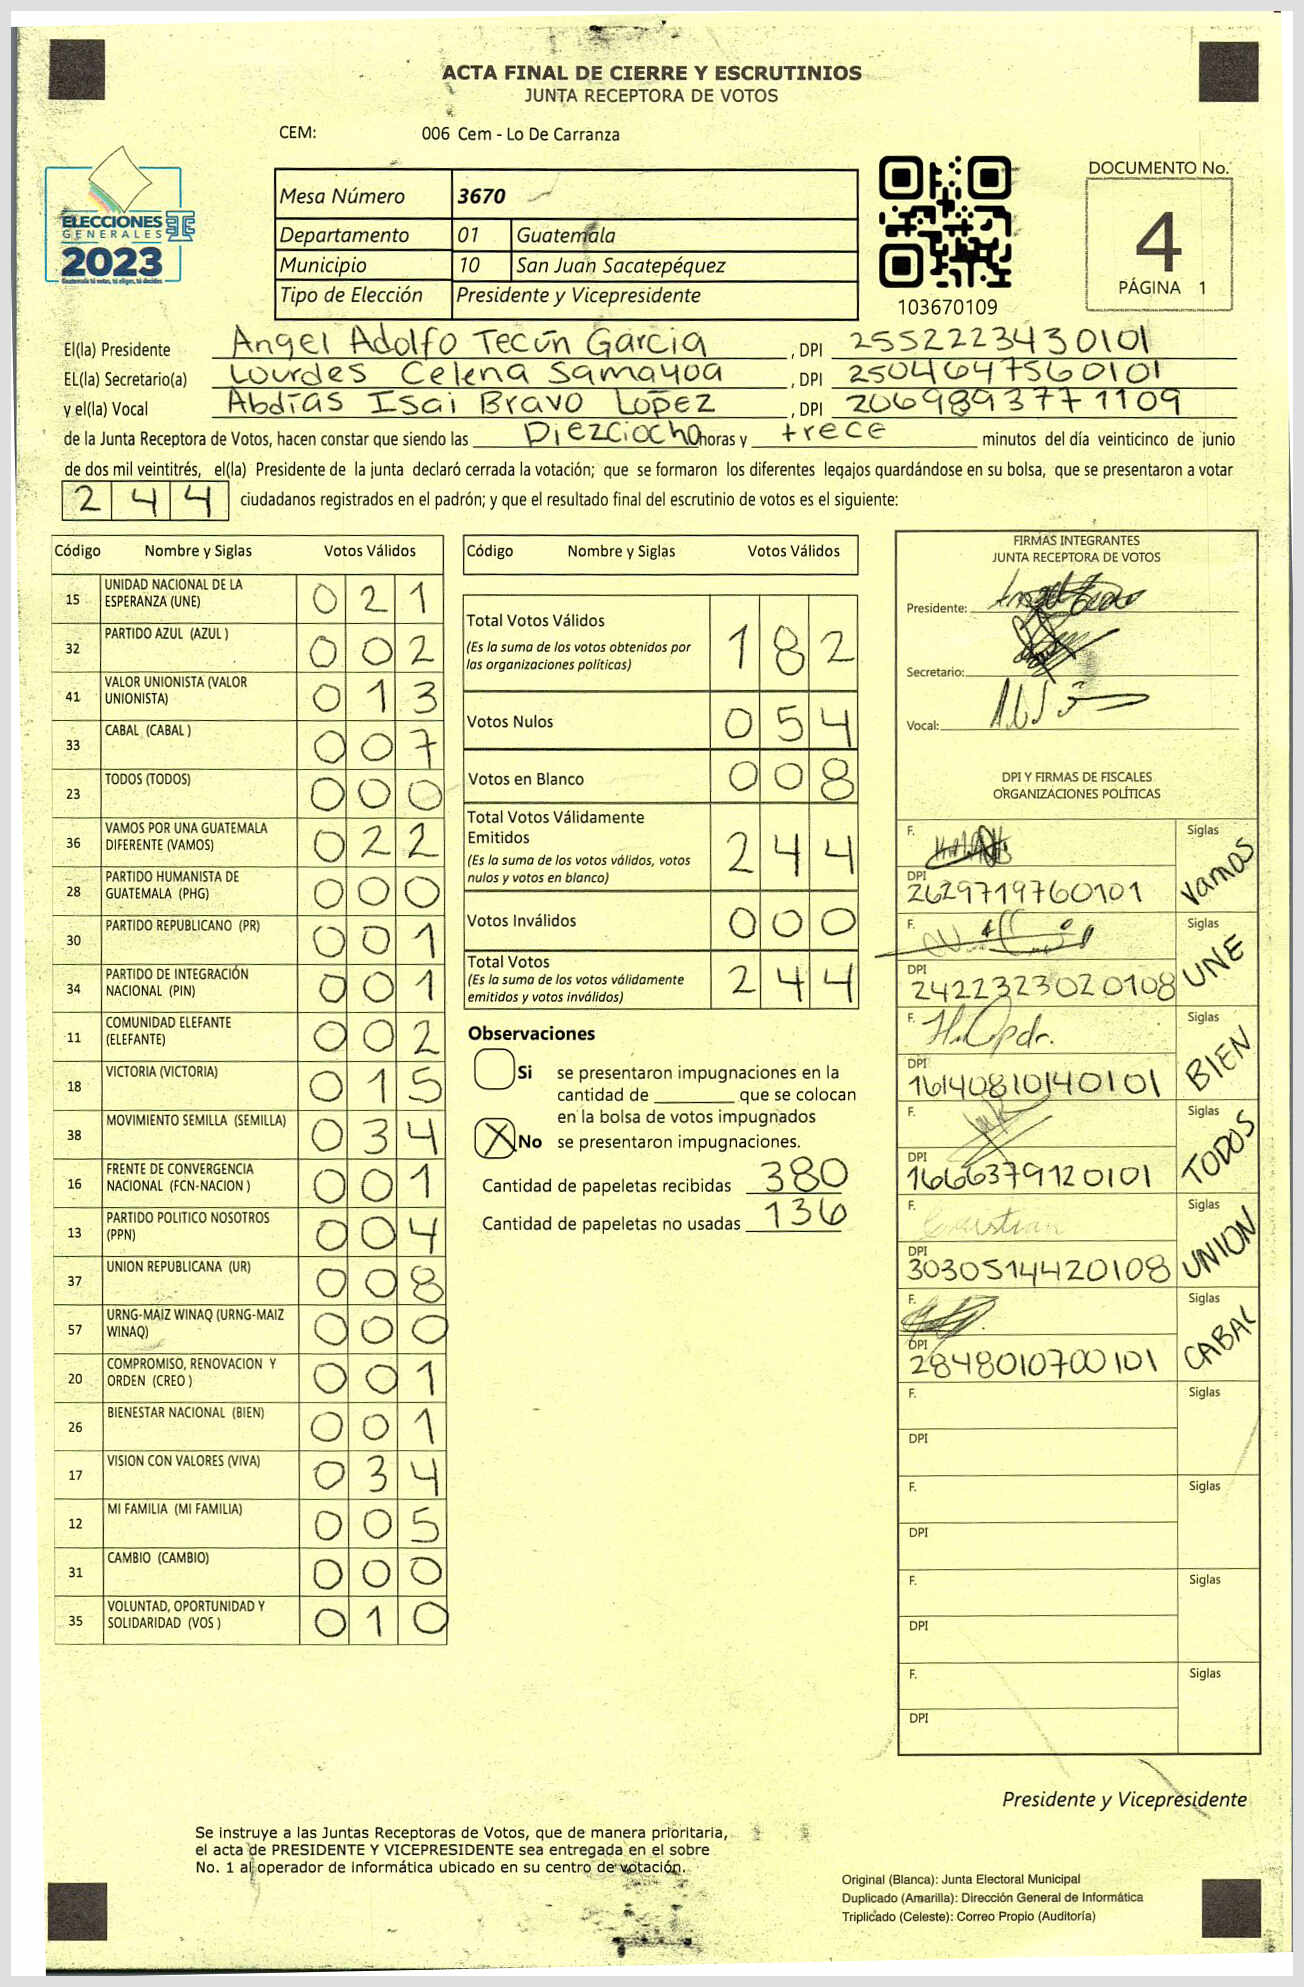 ACTA FINAL DE CIERRE Y ESCRUTINIOS
JUNTA RECEPTORA DE VOTOS
CEM: 006 Cem - Lo De Carranza
ELECCIONES
GENERALES
2023
Guatemala tú votas, tú eliges, tú decides
Mesa Número 3670
Departamento 01 Guatemala
Municipio 10 San Juan Sacatepéquez
Tipo de Elección Presidente y Vicepresidente
103670109
DOCUMENTO No.
4
PÁGINA 1
El(la) Presidente Angel Adolfo Tecún Garcia , DPI 2552223430101
EL(la) Secretario(a) Lourdes Celena Samayoa , DPI 2504647560101
y el(la) Vocal Abdías Isai Bravo López , DPI 2069893771109
de la Junta Receptora de Votos, hacen constar que siendo las Diezciocho horas y trece minutos del día veinticinco de junio
de dos mil veintitrés, el(la) Presidente de la junta declaró cerrada la votación; que se formaron los diferentes legajos quardándose en su bolsa, que se presentaron a votar
244 ciudadanos registrados en el padrón; y que el resultado final del escrutinio de votos es el siguiente:
Código Nombre y Siglas Votos Válidos
15 UNIDAD NACIONAL DE LA ESPERANZA (UNE) 021
32 PARTIDO AZUL (AZUL ) 002
41 VALOR UNIONISTA (VALOR UNIONISTA) 013
33 CABAL (CABAL ) 007
23 TODOS (TODOS) 000
36 VAMOS POR UNA GUATEMALA DIFERENTE (VAMOS) 022
28 PARTIDO HUMANISTA DE GUATEMALA (PHG) 000
30 PARTIDO REPUBLICANO (PR) 001
34 PARTIDO DE INTEGRACIÓN NACIONAL (PIN) 001
11 COMUNIDAD ELEFANTE (ELEFANTE) 002
18 VICTORIA (VICTORIA) 015
38 MOVIMIENTO SEMILLA (SEMILLA) 034
16 FRENTE DE CONVERGENCIA NACIONAL (FCN-NACION ) 001
13 PARTIDO POLITICO NOSOTROS (PPN) 004
37 UNION REPUBLICANA (UR) 008
57 URNG-MAIZ WINAQ (URNG-MAIZ WINAQ) 000
20 COMPROMISO, RENOVACION Y ORDEN (CREO ) 001
26 BIENESTAR NACIONAL (BIEN) 001
17 VISION CON VALORES (VIVA) 034
12 MI FAMILIA (MI FAMILIA) 005
31 CAMBIO (CAMBIO) 000
35 VOLUNTAD, OPORTUNIDAD Y SOLIDARIDAD (VOS ) 010
Código Nombre y Siglas Votos Válidos
Total Votos Válidos 182
(Es la suma de los votos obtenidos por
las organizaciones políticas)
Votos Nulos 054
Votos en Blanco 008
Total Votos Válidamente
Emitidos 244
(Es la suma de los votos válidos, votos
nulos y votos en blanco)
Votos Inválidos 000
Total Votos 244
(Es la suma de los votos válidamente
emitidos y votos inválidos)
Observaciones
Si se presentaron impugnaciones en la
cantidad de ________ que se colocan
en la bolsa de votos impugnados
X No se presentaron impugnaciones.
Cantidad de papeletas recibidas 380
Cantidad de papeletas no usadas 136
FIRMAS INTEGRANTES
JUNTA RECEPTORA DE VOTOS
Presidente:
Secretario:
Vocal:
DPI Y FIRMAS DE FISCALES
ORGANIZACIONES POLÍTICAS
F. Siglas
DPI 2629719760101 Vamos
F. Siglas
DPI 2422323020108 UNE
F. Siglas
DPI 16140810140101 BIEN
F. Siglas
DPI 1666379120101 TODOS
F. Siglas
DPI 3030514420108 UNION
F. Siglas
DPI 2848010700101 CABAL
F. Siglas
DPI
F. Siglas
DPI
F. Siglas
DPI
F. Siglas
DPI
Presidente y Vicepresidente
Se instruye a las Juntas Receptoras de Votos, que de manera prioritaria,
el acta de PRESIDENTE Y VICEPRESIDENTE sea entregada en el sobre
No. 1 al operador de informática ubicado en su centro de votación.
Original (Blanca): Junta Electoral Municipal
Duplicado (Amarilla): Dirección General de Informática
Triplicado (Celeste): Correo Propio (Auditoría)